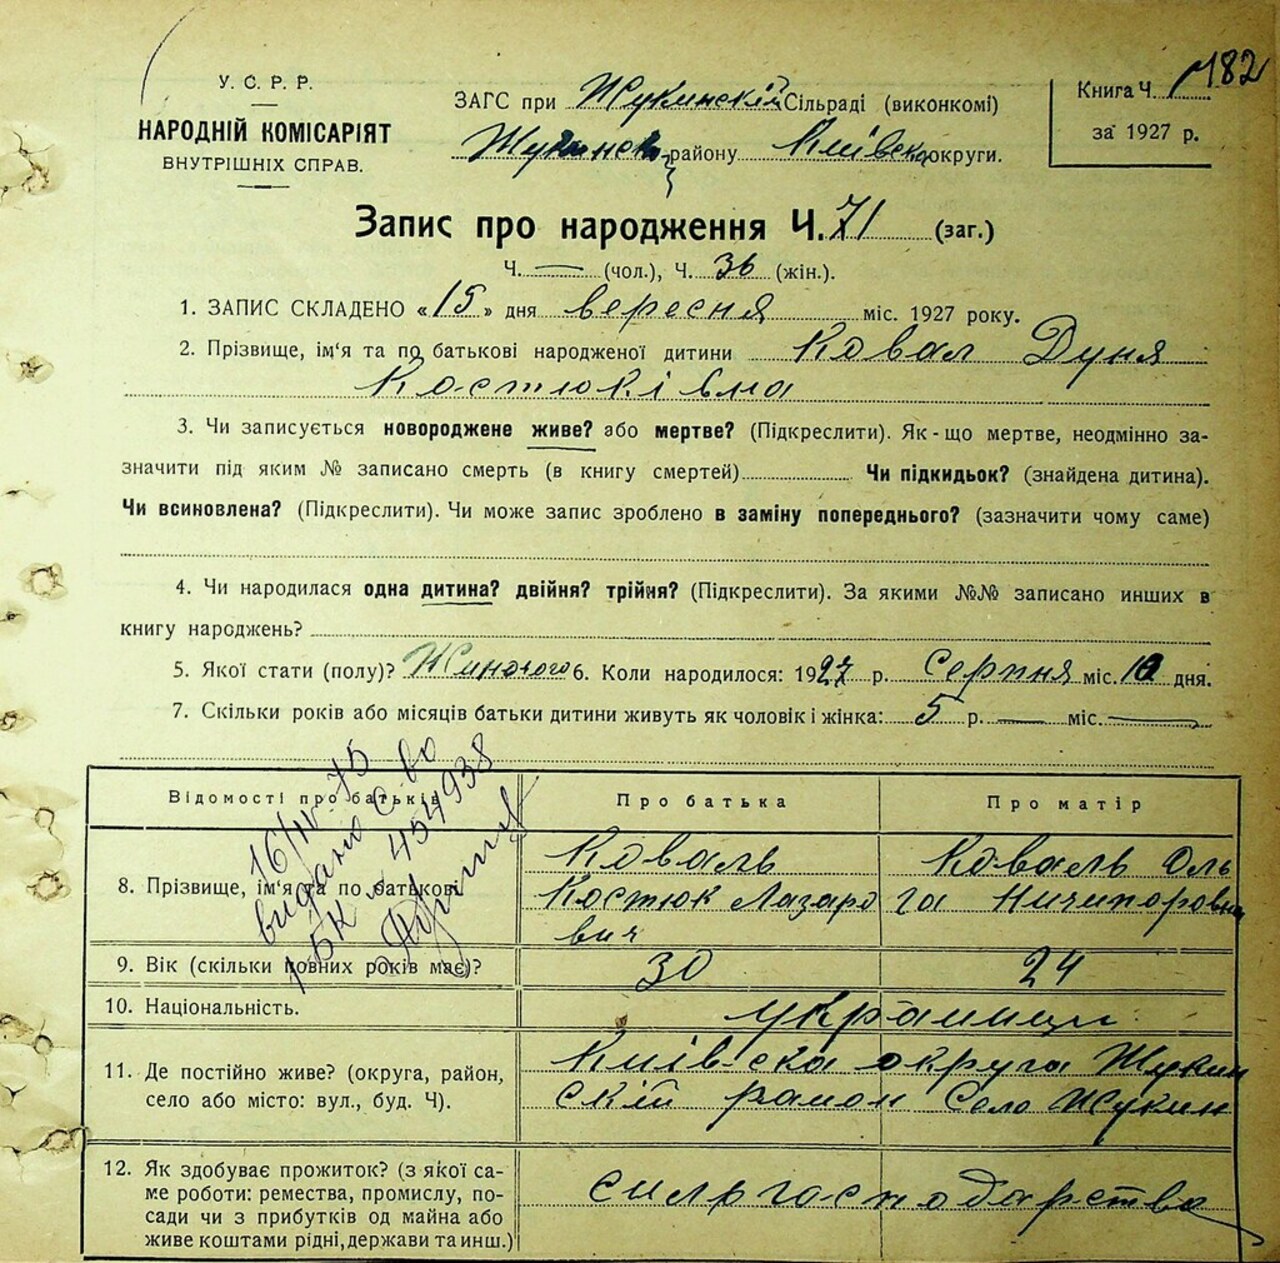 182
У. С. Р. Р.
НАРОДНІЙ КОМІСАРІЯТ
ВНУТРІШНІХ СПРАВ.
ЗАГС при Жукинскій Сільраді (виконкомі)
району Київско округи.
Книга Ч.
за 1927 р.
Запис про народження Ч. 71 (заг.)
Ч. — (чол.), Ч. 36 (жін.).
1. ЗАПИС СКЛАДЕНО «15» дня вересня міс. 1927 року.
2. Прізвище, ім'я та по батькові народженої дитини Ковал Дуня
Костюківна
3. Чи записується новороджене живе? або мертве? (Підкреслити). Як-що мертве, неодмінно за-
значити під яким № записано смерть (в книгу смертей) Чи підкидьок? (знайдена дитина).
Чи всиновлена? (Підкреслити). Чи може запис зроблено в заміну попереднього? (зазначити чому саме)
4. Чи народилася одна дитина? двійня? трійня? (Підкреслити). За якими №№ записано инших в
книгу народжень?
5. Якої стати (полу)? 6. Коли народилося: 1927 р. Серпня міс. 10 дня.
7. Скільки років або місяців батьки дитини живуть як чоловік і жінка: 5 р. — міс. —
Відомості про батьків
Про батька
Про матір
16/IV 75
видано с-во
454938
8. Прізвище, ім'я та по батькові
Коваль
Костюк Лазаро
вич
Коваль Оль
га Ничипоровна
9. Вік (скільки повних років має)?
30
24
10. Національність.
украинци
11. Де постійно живе? (округа, район,
село або місто: вул., буд. Ч).
Київска округа Жукин
скій район Село Жукин
12. Як здобуває прожиток? (з якої са-
ме роботи: ремества, промислу, по-
сади чи з прибутків од майна або
живе коштами рідні, держави та инш.)
силргасподарство